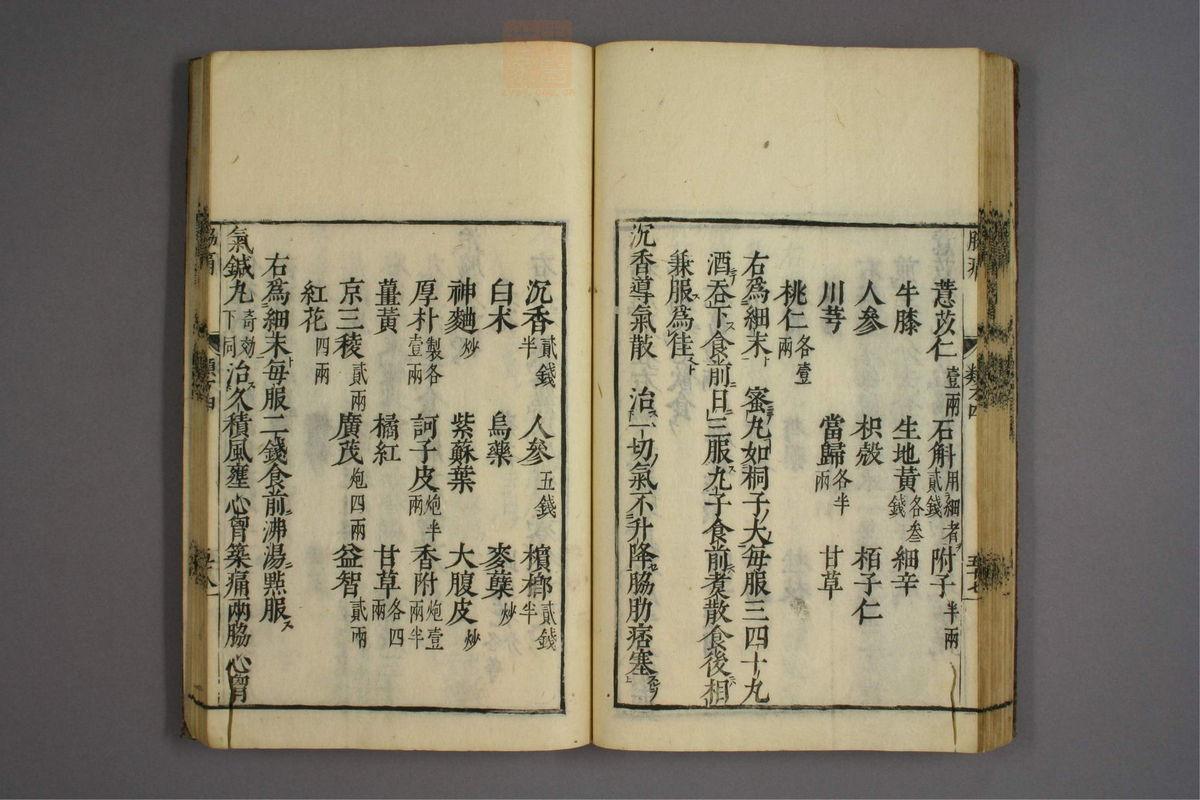 薏苡仁壹兩 石斛用細者貳錢 附子半兩
牛膝 生地黃各叁錢 細辛
人參 枳殼 栢子仁
川芎 當歸各半兩 甘草
桃仁各壹兩
右爲細末蜜丸如桐子大每服三四十丸
酒吞下食前日三服丸子食前煑散食後相
兼服爲佳
沉香導氣散 治一切氣不升降脇肋痞塞
沉香貳錢半 人參五錢 檳榔貳錢半
白朮 烏藥 麥蘖炒
神麯炒 紫蘇葉 大腹皮炒
厚朴製各壹兩 訶子皮炮半兩 香附炮壹兩半
薑黃 橘紅 甘草各四兩
京三稜貳兩 廣茂炮四兩 益智貳兩
紅花四兩
右爲細末每服二錢食前沸湯㸃服
氣鍼丸奇効下同 治久積風壅心胷築痛兩脇心胷